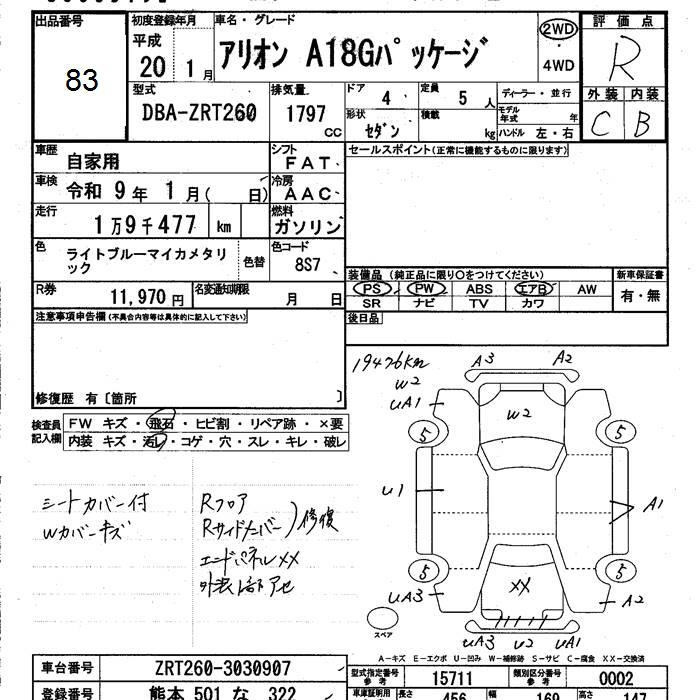 出品番号 83
初度登録年月 平成 20 1月
車名・グレード アリオン A18Gパッケージ
2WD・4WD
評価点 R
外装 C 内装 B
型式 DBA-ZRT260
排気量 1797 cc
ドア 4
定員 5 人
形状 セダン
積載 kg
ディーラー・並行
モデル年式 年
ハンドル 左・右
車歴 自家用
シフト FAT
セールスポイント(正常に機能するものに限ります)
車検 令和 9年 1月( 日)
冷房 AAC
走行 1万9千477 km
燃料 ガソリン
色 ライトブルーマイカメタリック
色替
色コード 8S7
R券 11,970円
名変通知期限 月 日
装備品(純正品に限り○をつけてください)
PS PW ABS エアB AW
SR ナビ TV カワ
新車保証書 有・無
後日品
注意事項申告欄(不具合内容等は具体的に記入して下さい)
修復歴 有〔箇所 〕
検査員記入欄
FW キズ・飛石・ヒビ割・リペア跡・×要
内装 キズ・汚レ・コゲ・穴・スレ・キレ・破レ
19476km
W2
A3 A2
UA1
W2
5 5
U1
A1
5 5
XX
UA3
A2
UA3 U2 UA1
スペア
シートカバー付
Wカバーキズ
Rフロア
Rサイドメンバー)修復
エンドパネルXX
A-キズ E-エクボ U-凹み W-補修跡 S-サビ C-腐食 XX-交換済
車台番号 ZRT260-3030907
型式指定番号 参考 15711
類別区分番号 参考 0002
登録番号 熊本 501 な 322
車庫証明用 長さ 456 幅 169 高さ 147